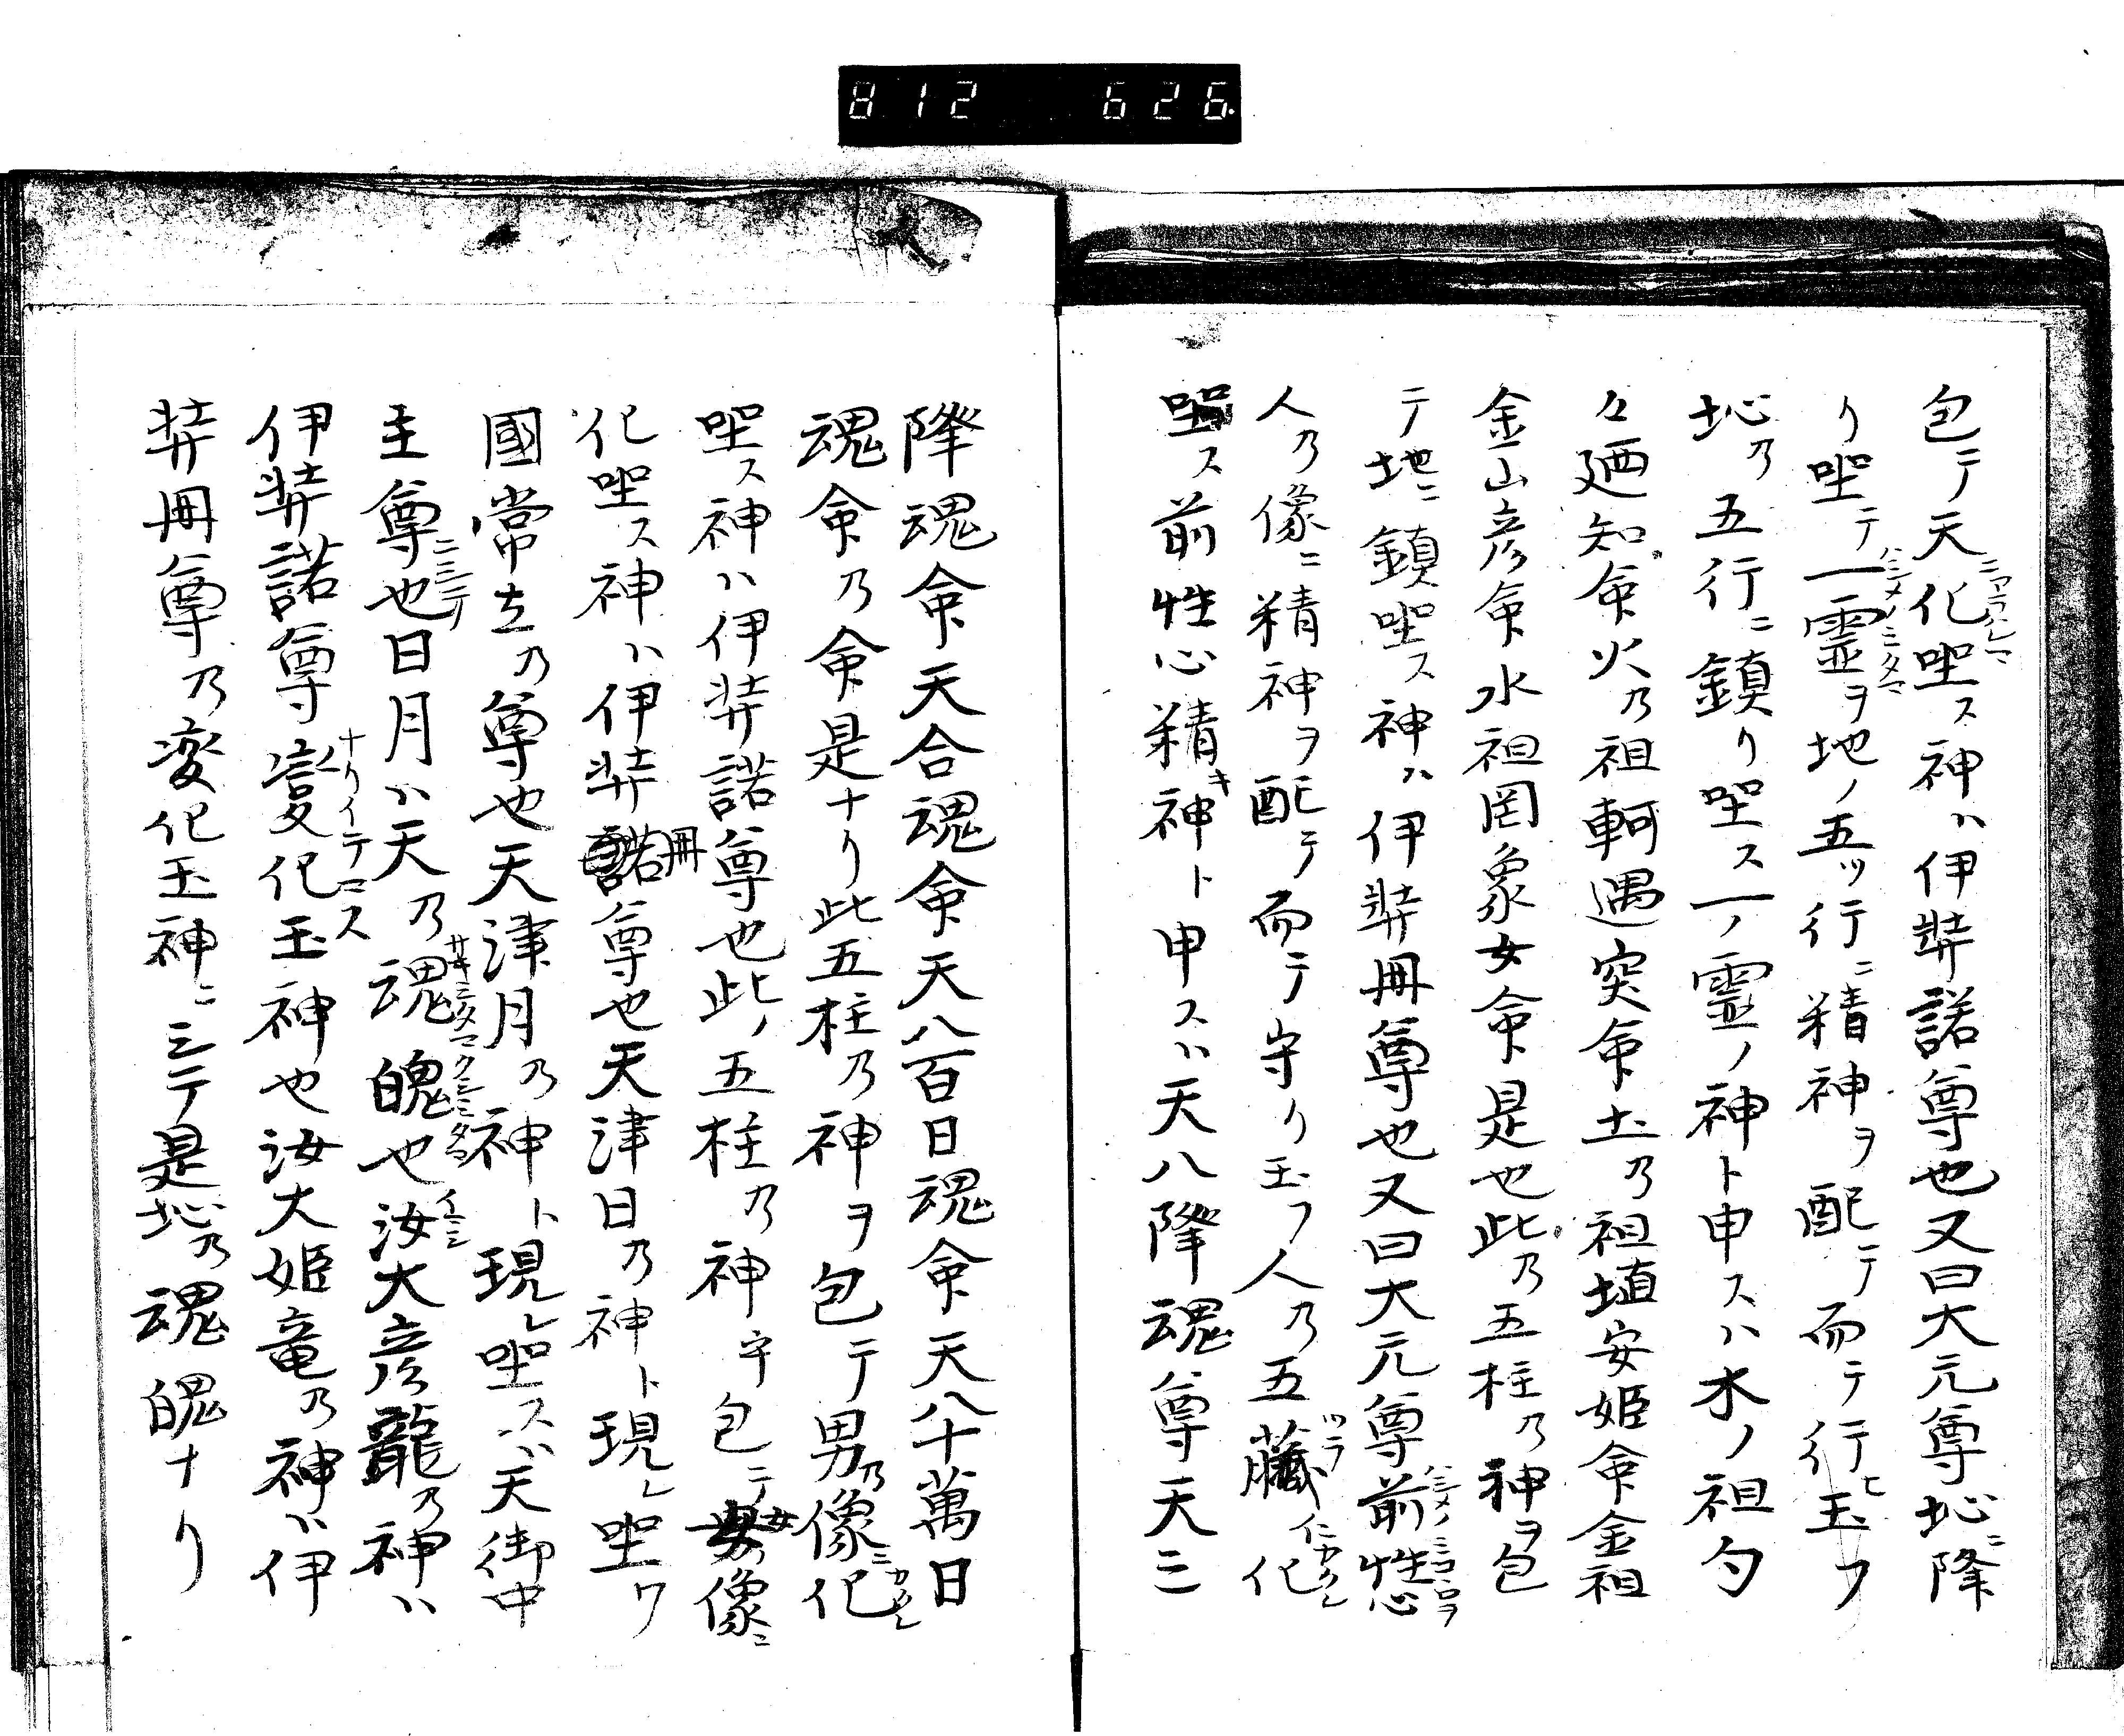 812 626
包テ天ニ化坐ス神ハ伊弉諾尊也又曰大元尊地ニ降
リ坐テ一霊ヲ地ノ五ツ行ニ精神ヲ配テ而テ行ヒ玉フ
地乃五行ニ鎮リ坐ス一ノ霊ノ神ト申スハ木ノ祖勾
々廼知命火乃祖軻遇突命土乃祖埴安姫命金祖
金山彦命水祖罔象女命是也此乃五柱乃神ヲ包
テ地ニ鎮坐ス神ハ伊弉冊尊也又曰大元尊前性心
人乃像ニ精神ヲ配テ而テ守リ玉フ人乃五蔵化
坐ス前性心精キ神ト申スハ天八降魂尊天三
降魂命天合魂命天八百日魂命天八十萬日
魂命乃命是ナリ此五柱乃神ヲ包テ男乃像ニ化
坐ス神ハ伊弉諾尊也此ノ五柱乃神ヲ包テ女乃像ニ
化坐ス神ハ伊弉冊尊也天津日乃神ト現レ坐ワ
國常立乃尊也天津月乃神ト現レ坐スハ天御中
主尊也日月ハ天乃魂魄也汝大彦龍乃神ハ
伊弉諾尊變化玉神也汝大姫竜乃神ハ伊
弉冊尊乃変化玉神ニ三テ是地乃魂魄ナリ